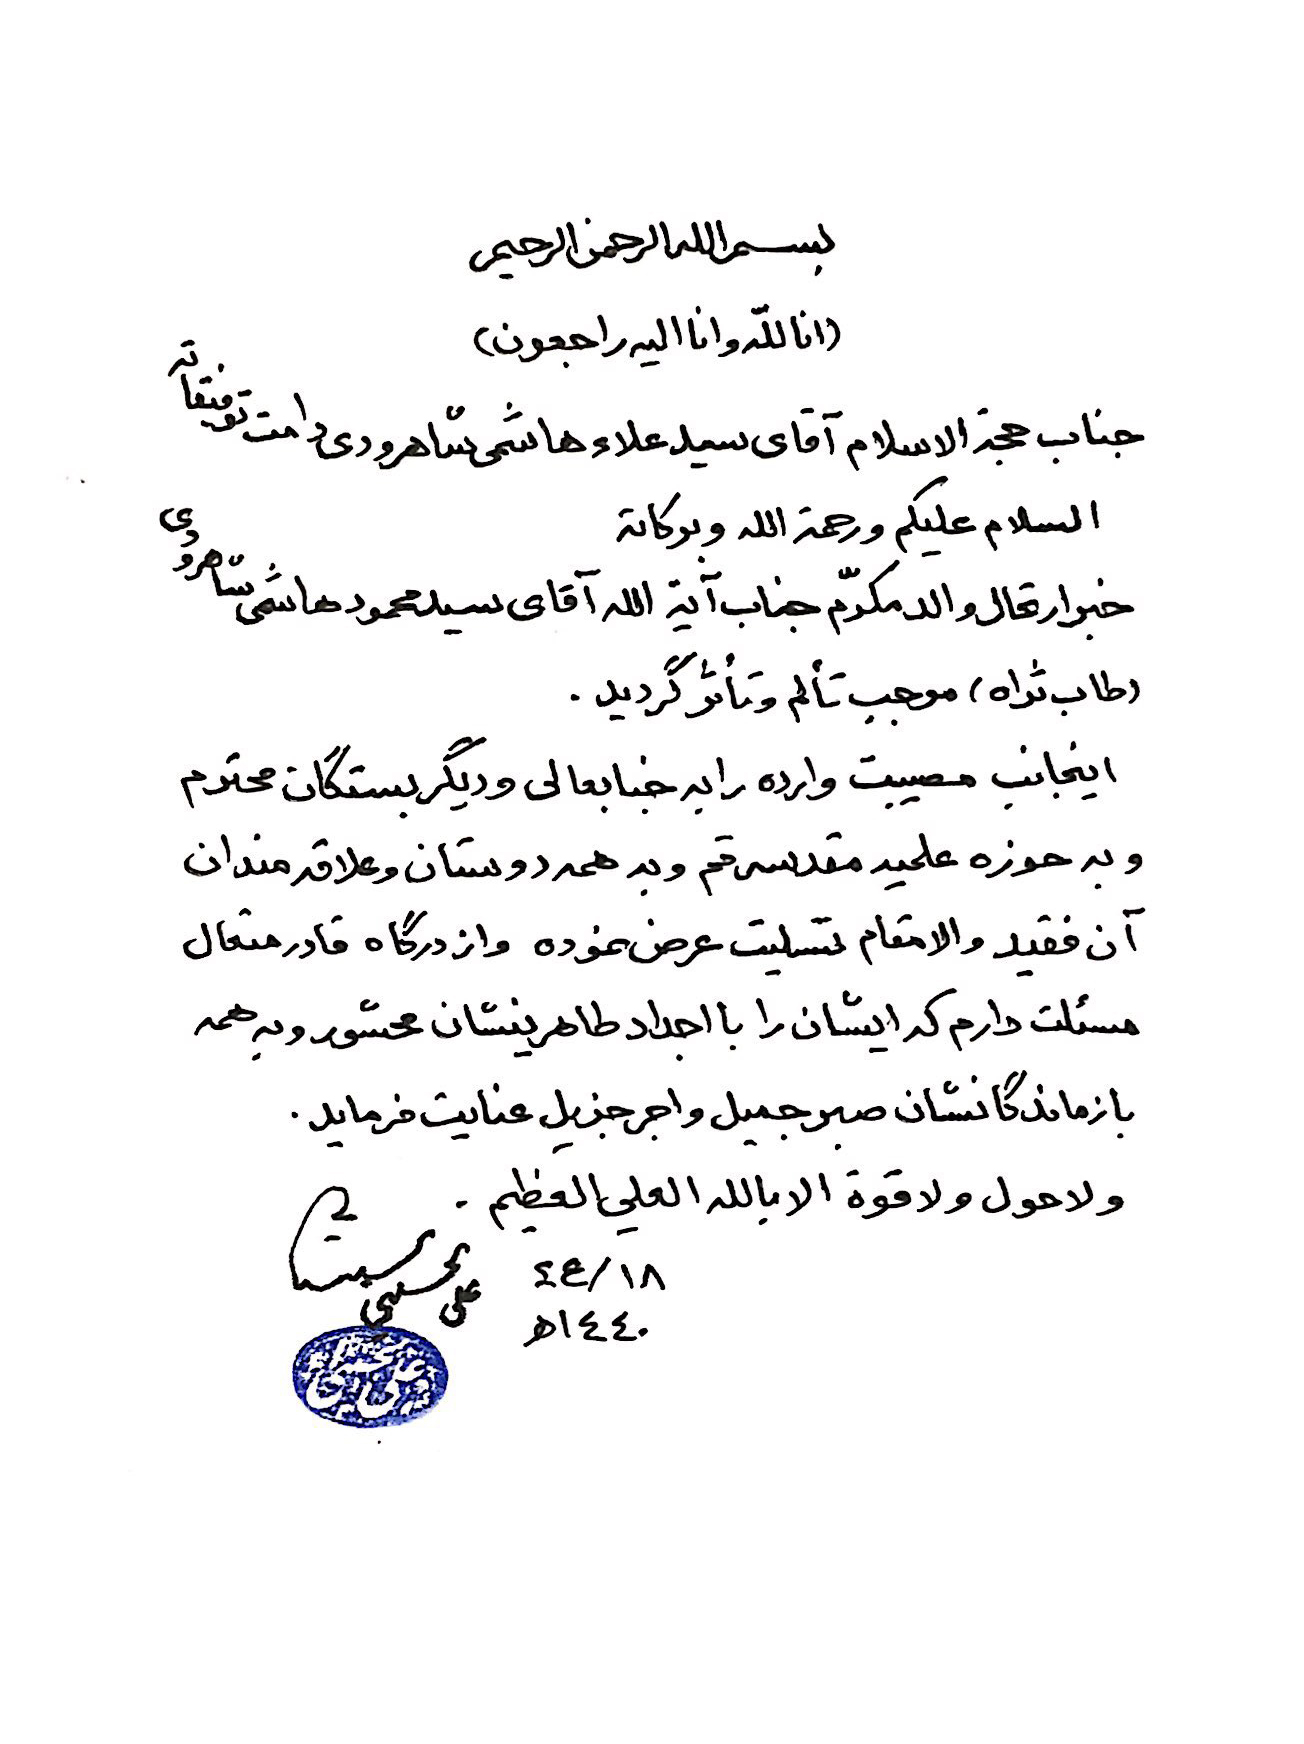 بسم الله الرحمن الرحیم
(انا للّه وانا الیه راجعون)
جناب حجة الاسلام آقای سید علاء هاشمی شاهرودی دامت توفیقاته
السلام علیکم ورحمة الله وبرکاته
خبر ارتحال والد مکرّم جناب آیة الله آقای سید محمود هاشمی شاهرودی
(طاب ثراه) موجب تألم وتأثر گردید .
اینجانب مصیبت وارده را به جنابعالی و دیگر بستگان محترم
و به حوزه علمیه مقدسه قم و به همه دوستان و علاقه مندان
آن فقید والامقام تسلیت عرض نموده و از درگاه قادر متعال
مسئلت دارم که ایشان را با اجداد طاهرینشان محشور و به همه
بازماندگانشان صبر جمیل و اجر جزیل عنایت فرماید .
ولا حول ولا قوة الا بالله العلي العظیم .
١٨/ع٤
١٤٤٠ه
علي الحسيني السيستاني